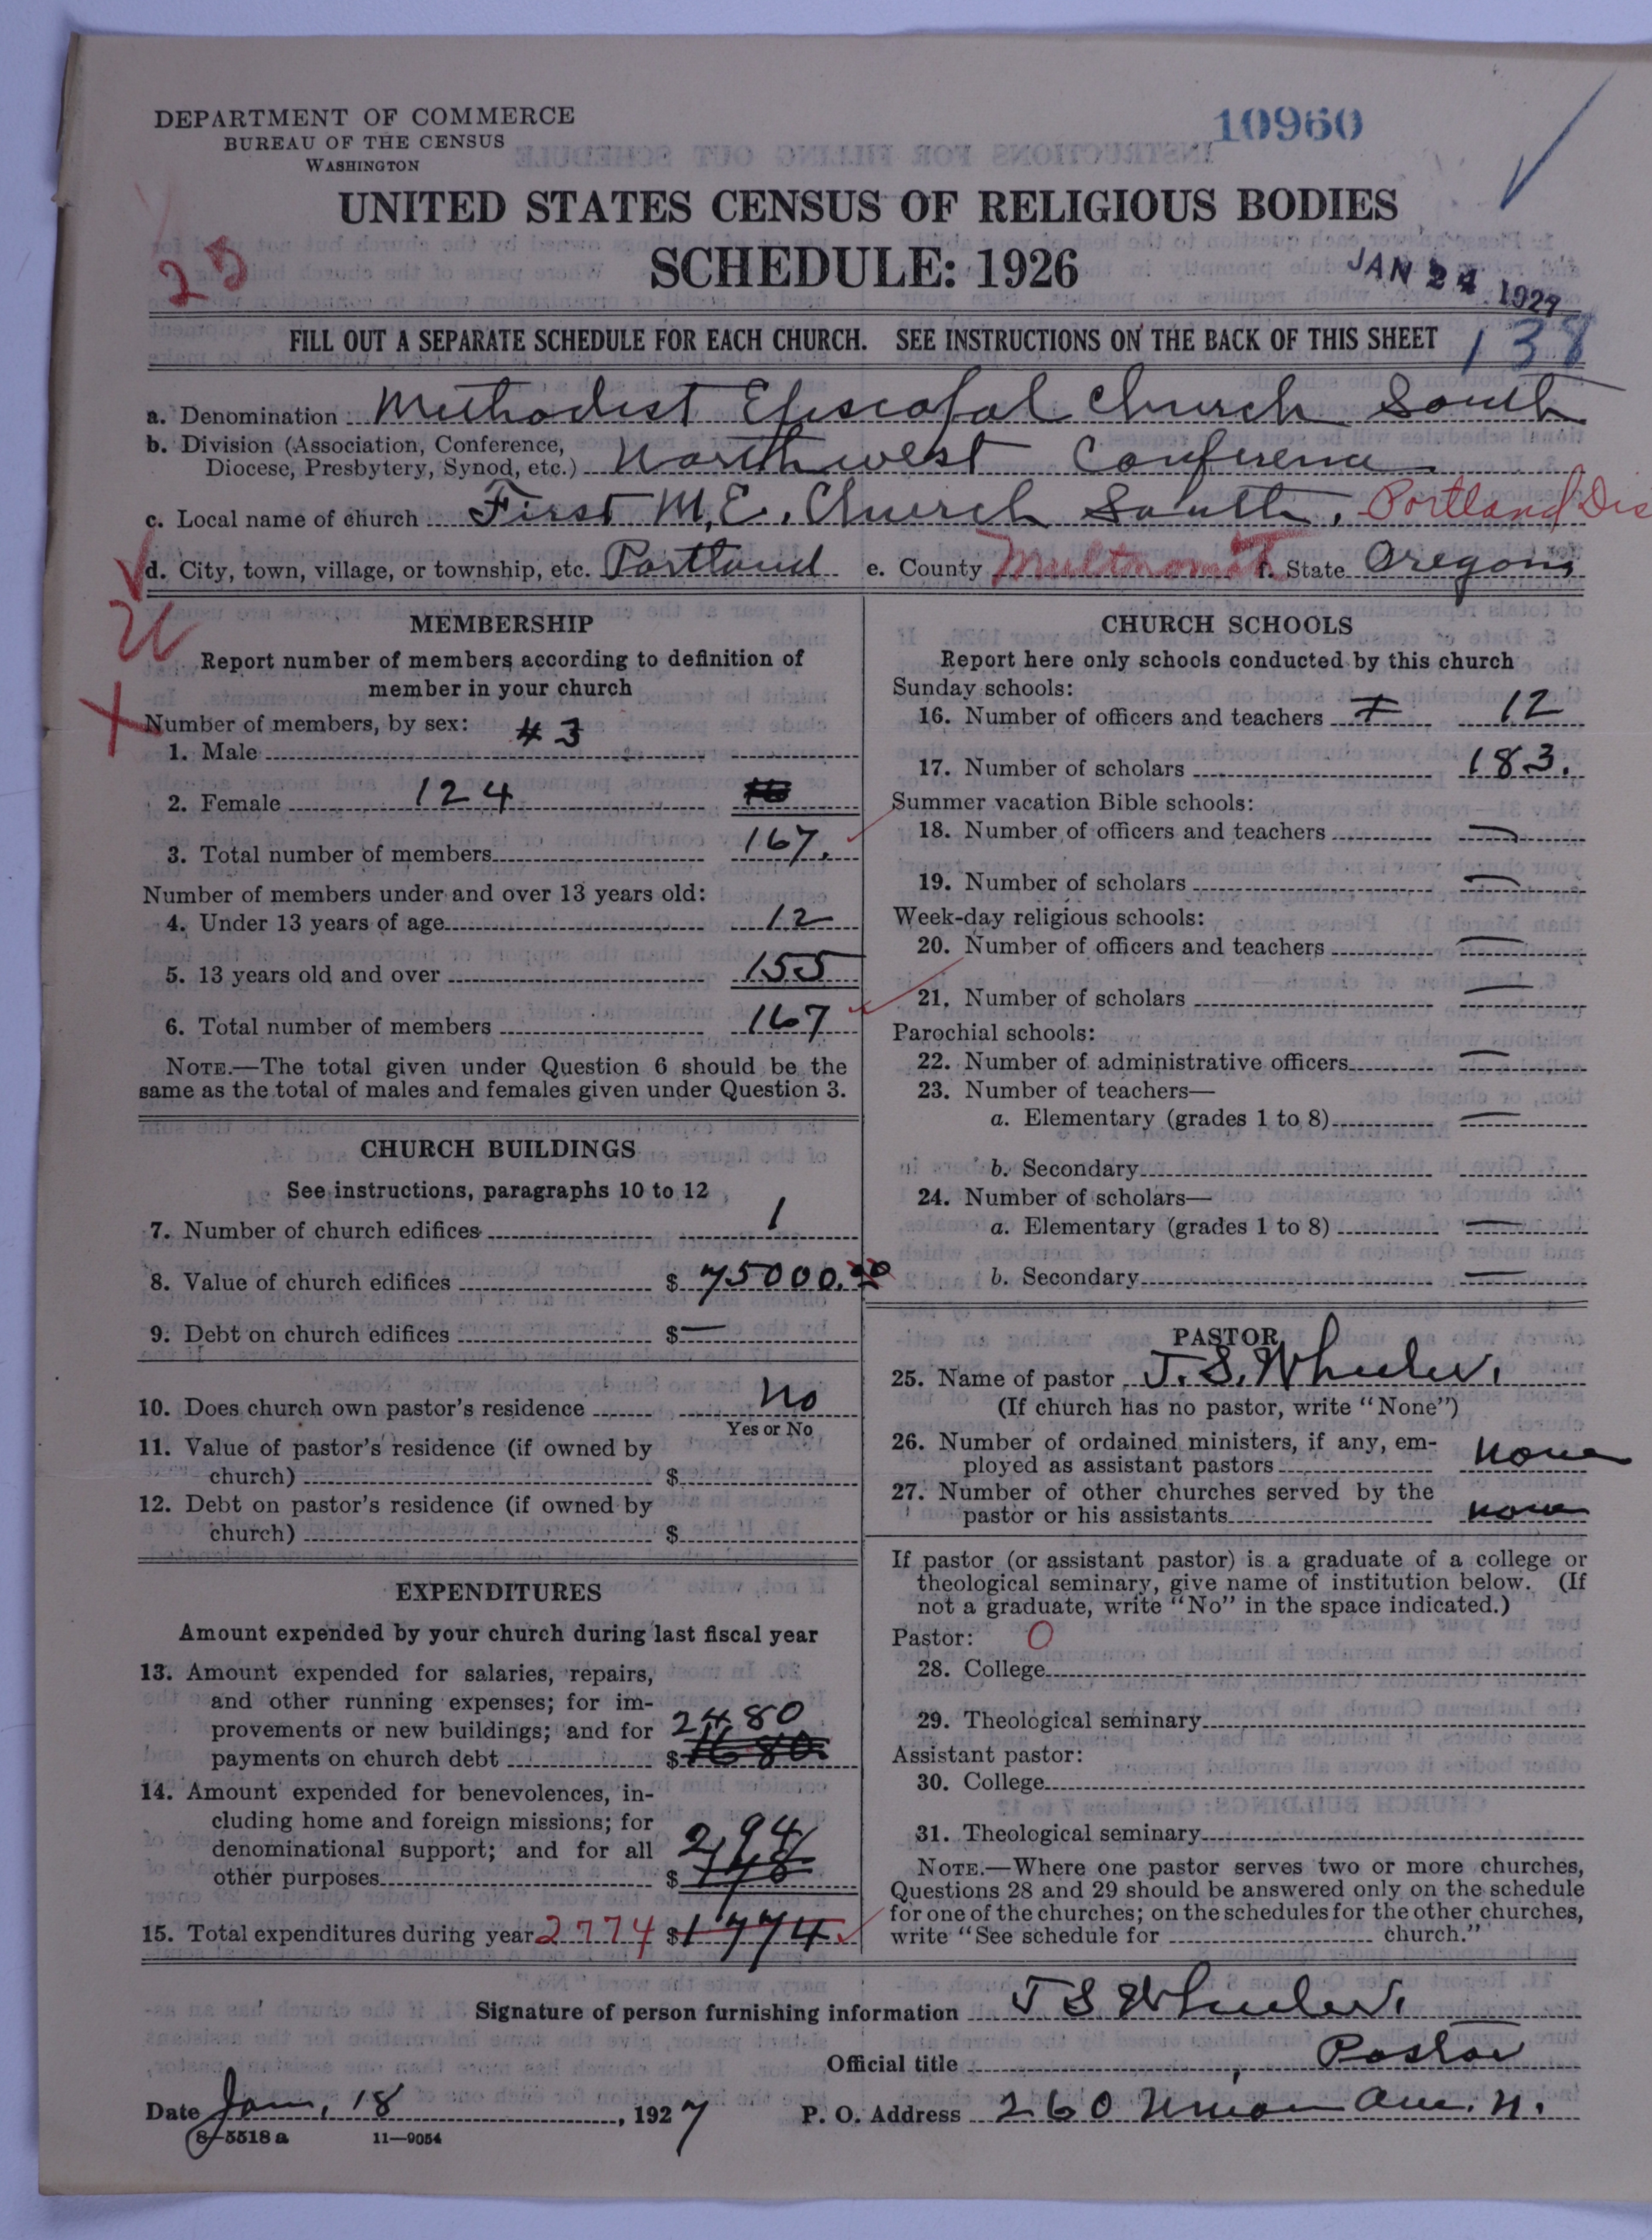 DEPARTMENT OF COMMERCE
BUREAU OF THE CENSUS
WASHINGTON
10960
UNITED STATES CENSUS OF RELIGIOUS BODIES
SCHEDULE: 1926
25
JAN 24 1927
FILL OUT A SEPARATE SCHEDULE FOR EACH CHURCH. SEE INSTRUCTIONS ON THE BACK OF THIS SHEET
138
a. Denomination Methodist Episcopal Church South
b. Division (Association, Conference,
Diocese, Presbytery, Synod, etc.) Northwest Conference
c. Local name of church First M.E. Church South, Portland Dis
d. City, town, village, or township, etc. Portland e. County Multnomah f. State Oregon
MEMBERSHIP
Report number of members according to definition of
member in your church
Number of members, by sex:
1. Male 43
2. Female 124
3. Total number of members 167.
Number of members under and over 13 years old:
4. Under 13 years of age 12
5. 13 years old and over 155
6. Total number of members 167
NOTE.—The total given under Question 6 should be the
same as the total of males and females given under Question 3.
CHURCH BUILDINGS
See instructions, paragraphs 10 to 12
7. Number of church edifices 1
8. Value of church edifices $ 75000.00
9. Debt on church edifices $ —
10. Does church own pastor's residence No
Yes or No
11. Value of pastor's residence (if owned by
church) $
12. Debt on pastor's residence (if owned by
church) $
EXPENDITURES
Amount expended by your church during last fiscal year
13. Amount expended for salaries, repairs,
and other running expenses; for im-
provements or new buildings; and for 2480
payments on church debt $ 1680
14. Amount expended for benevolences, in-
cluding home and foreign missions; for
denominational support; and for all 294
other purposes $
15. Total expenditures during year 2774 $ 1774
CHURCH SCHOOLS
Report here only schools conducted by this church
Sunday schools:
16. Number of officers and teachers 12
17. Number of scholars 183.
Summer vacation Bible schools:
18. Number of officers and teachers —
19. Number of scholars —
Week-day religious schools:
20. Number of officers and teachers —
21. Number of scholars —
Parochial schools:
22. Number of administrative officers —
23. Number of teachers—
a. Elementary (grades 1 to 8) —
b. Secondary
24. Number of scholars—
a. Elementary (grades 1 to 8) —
b. Secondary —
PASTOR
25. Name of pastor J. S. Wheeler.
(If church has no pastor, write "None")
26. Number of ordained ministers, if any, em-
ployed as assistant pastors none
27. Number of other churches served by the
pastor or his assistants none
If pastor (or assistant pastor) is a graduate of a college or
theological seminary, give name of institution below. (If
not a graduate, write "No" in the space indicated.)
Pastor: O
28. College
29. Theological seminary
Assistant pastor:
30. College
31. Theological seminary
NOTE.—Where one pastor serves two or more churches,
Questions 28 and 29 should be answered only on the schedule
for one of the churches; on the schedules for the other churches,
write "See schedule for church."
Signature of person furnishing information J S Wheeler.
Official title Pastor
Date Jan, 18, 1927 P. O. Address 260 Union Ave. N.
8—5518 a 11—9054